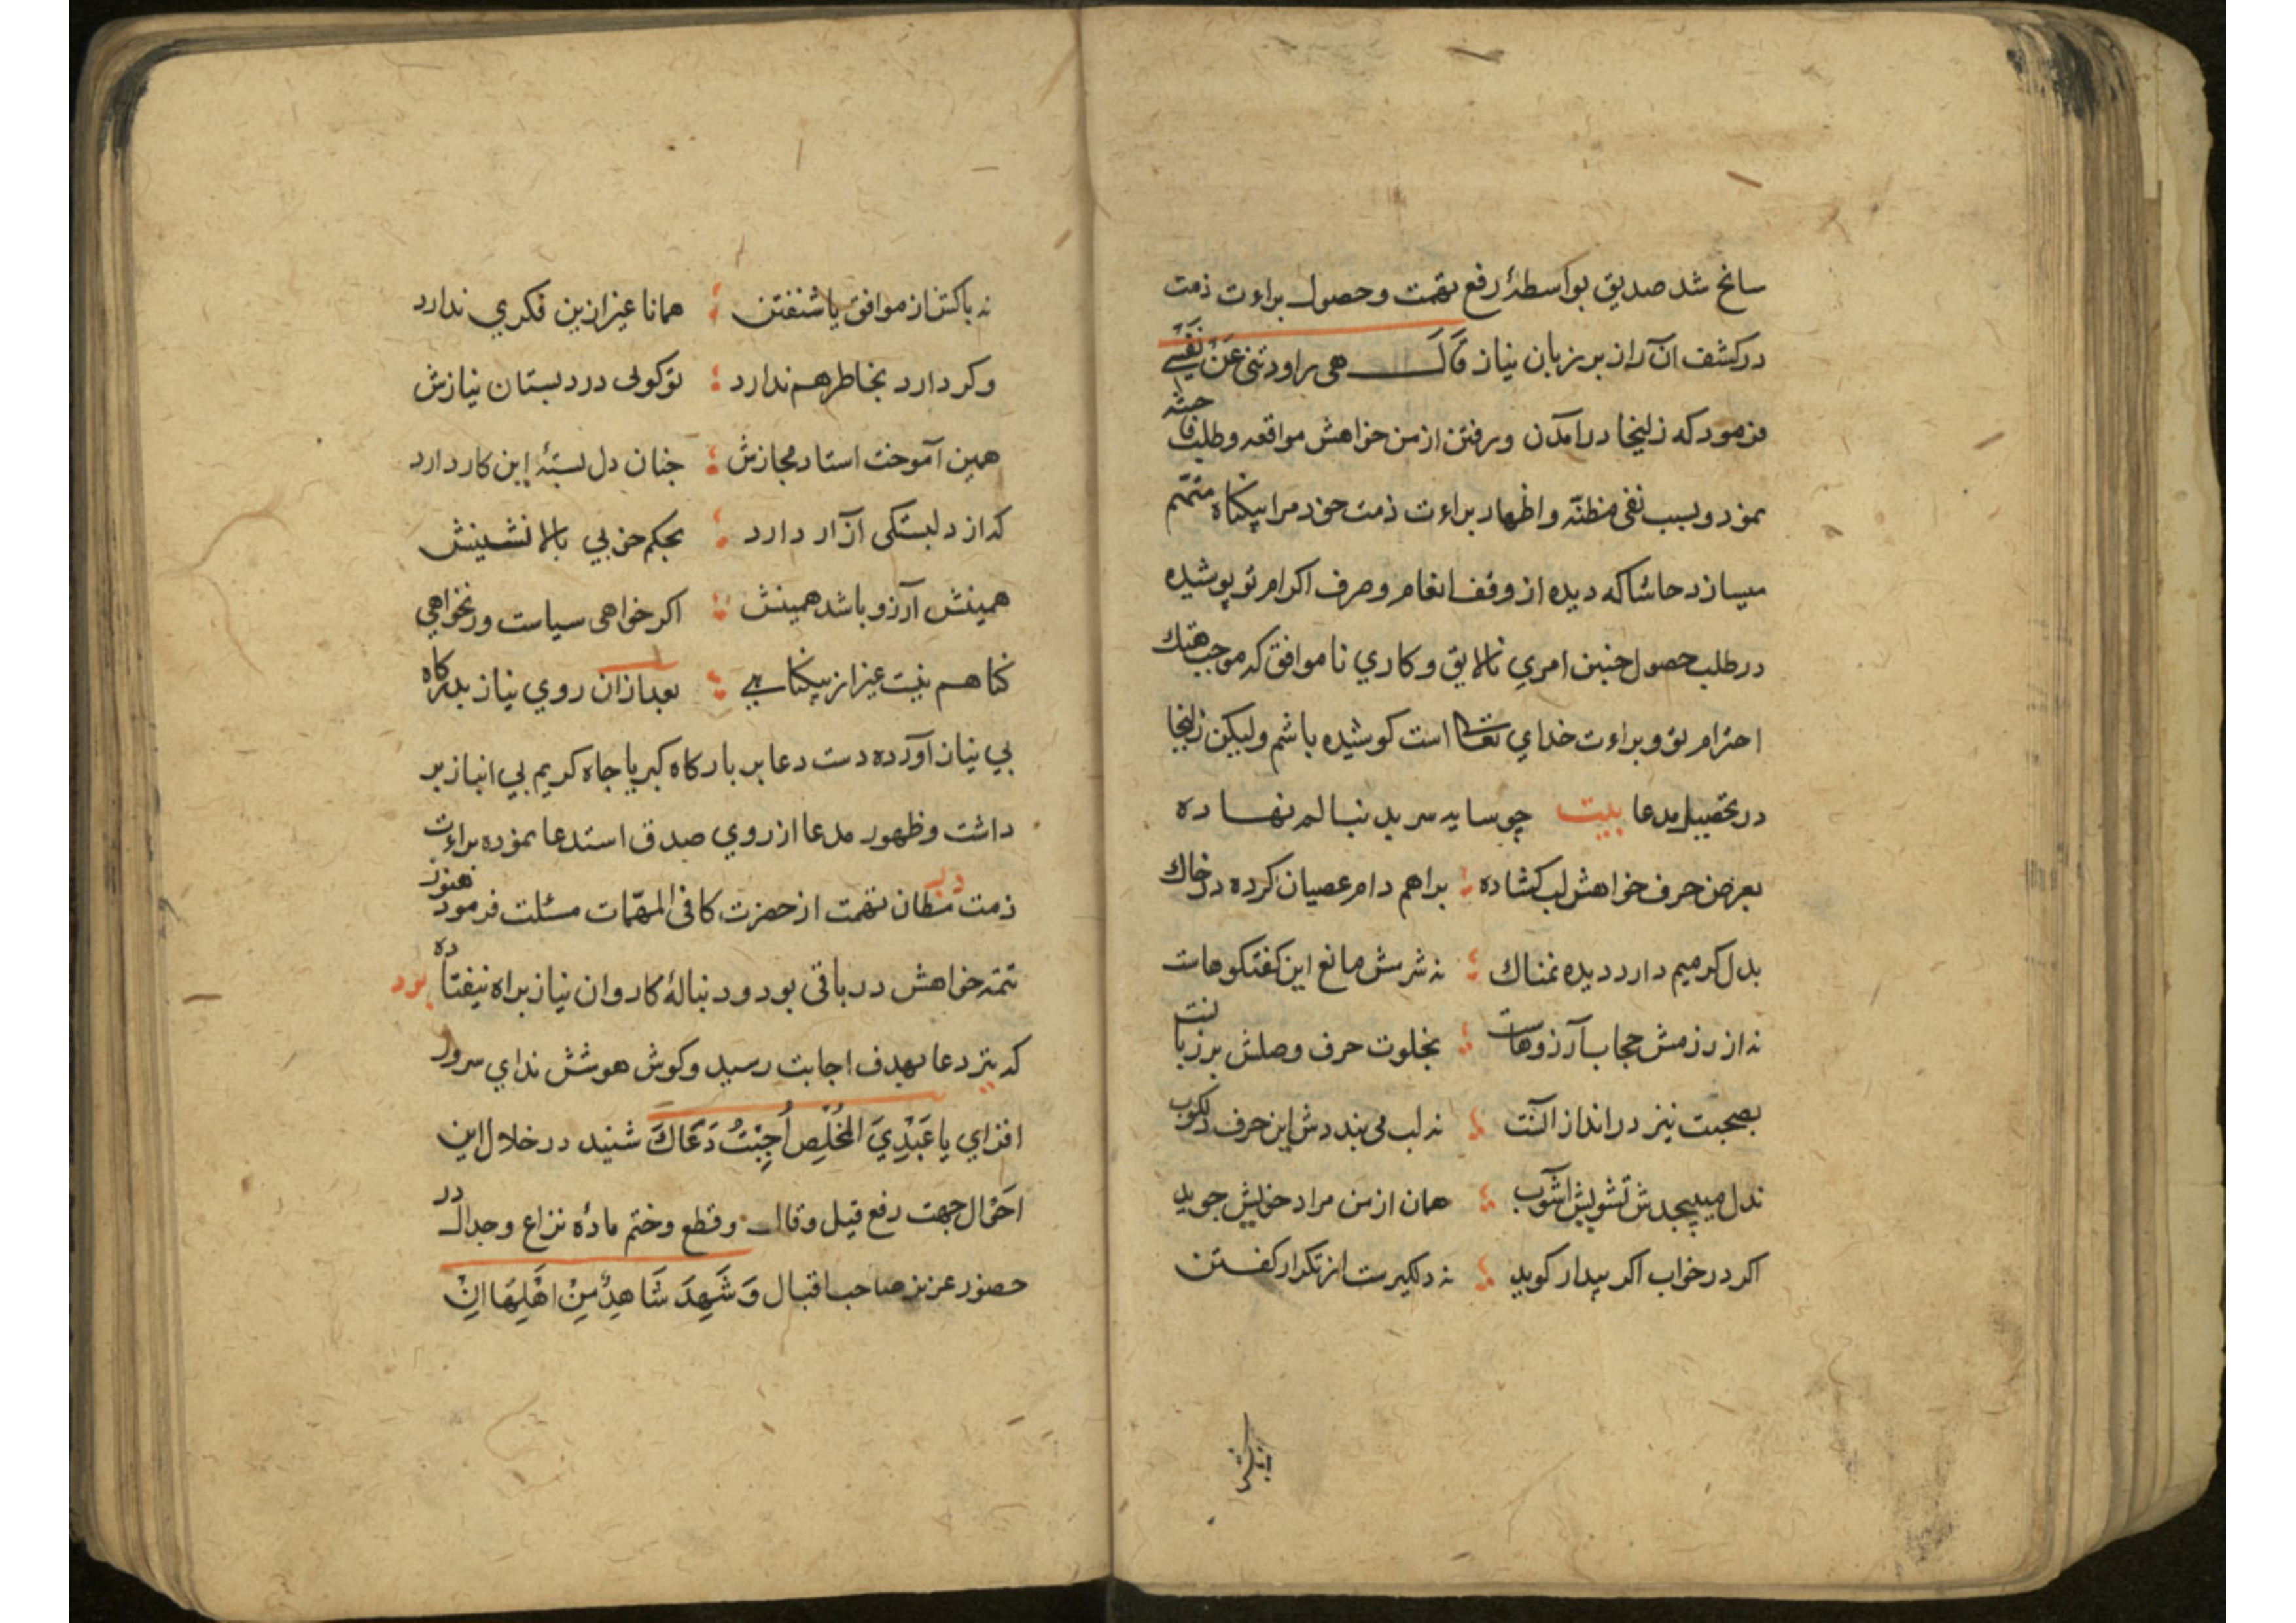 سانح شد صدیق بواسطۀ رفع تهمت و حصول براءت ذمت
در کشف آن راز بر زبان نیاز قَالَ هی راودتنی عَنْ نَفْسِی
فرمود که زلیخا در آمدن و رفتن از من خواهش مواقعه و طلب فاحشه
نمود و بسبب نفی مظنّه و اظهار براءت ذمت خود مرا بیکناه متهم
میسازد حاشا که دیده از وقف انعام و صرف اکرام تو پوشیده
در طلب حصول چنین امری نالایق و کاری ناموافق که موجب هتك
احترام تو و براءت خدای تعالی است کوشیده باشم ولیکن زلیخا
در تحصیل مدعا بیت چو سایه سر بدنبالم نهاده
بعرض حرف خواهش لب کشاده براهم دام عصیان کرده در خاك
بدل کرمیم دارد دیده نمناك نه شرمش مانع این کفتکوهاست
نه از رزمش حجاب آرزوهاست بخلوت حرف وصلش بر زبانست
بصحبت نیز در انداز آنست نه لب می بنددش این حرف دلکوب
نه دل میپیچدش تشویش آشوب همان از من مراد خویش جوید
اکر در خواب اکر بیدار کوید نه دلکیرست از تکرار کفتن
نه باکش از موافق یا شنفتن همانا غیر ازین فکری ندارد
وکر دارد بخاطر هم ندارد تو کوئی در دبستان نیازش
همین آموخت استاد مجازش چنان دل بستۀ این کار دارد
که از دلبستکی آزار دارد بحکم خوبی بالا نشینش
همینش آرزو باشد همینش اکر خواهی سیاست ور نخواهی
کناهم نیست غیر از بیکناهی بعد ازان روی نیاز بدرکاه
بی نیاز آورده دست دعا بر بارکاه کبریا جاه کریم بی انباز بر
داشت و ظهور مدعا از روی صدق استدعا نموده براءت
ذمت در مظان تهمت از حضرت کافی المهمّات مسئلت فرمود هنوز
تتمه خواهش در باقی بود و دنبالۀ کاروان نیاز براه نیفتاده بود
که تیر دعا بهدف اجابت رسید و کوش هوشش ندای سرور
افزای یا عَبْدِیَ المُخْلِص أُجِبْتُ دَعَاكَ شنید در خلال این
احوال جهت رفع قیل و قال و قطع و ختم مادۀ نزاع و جدال در
حضور عزیز صاحب اقبال وَ شَهِدَ شَاهِدٌ مِنْ اَهْلِهَا اِنْ